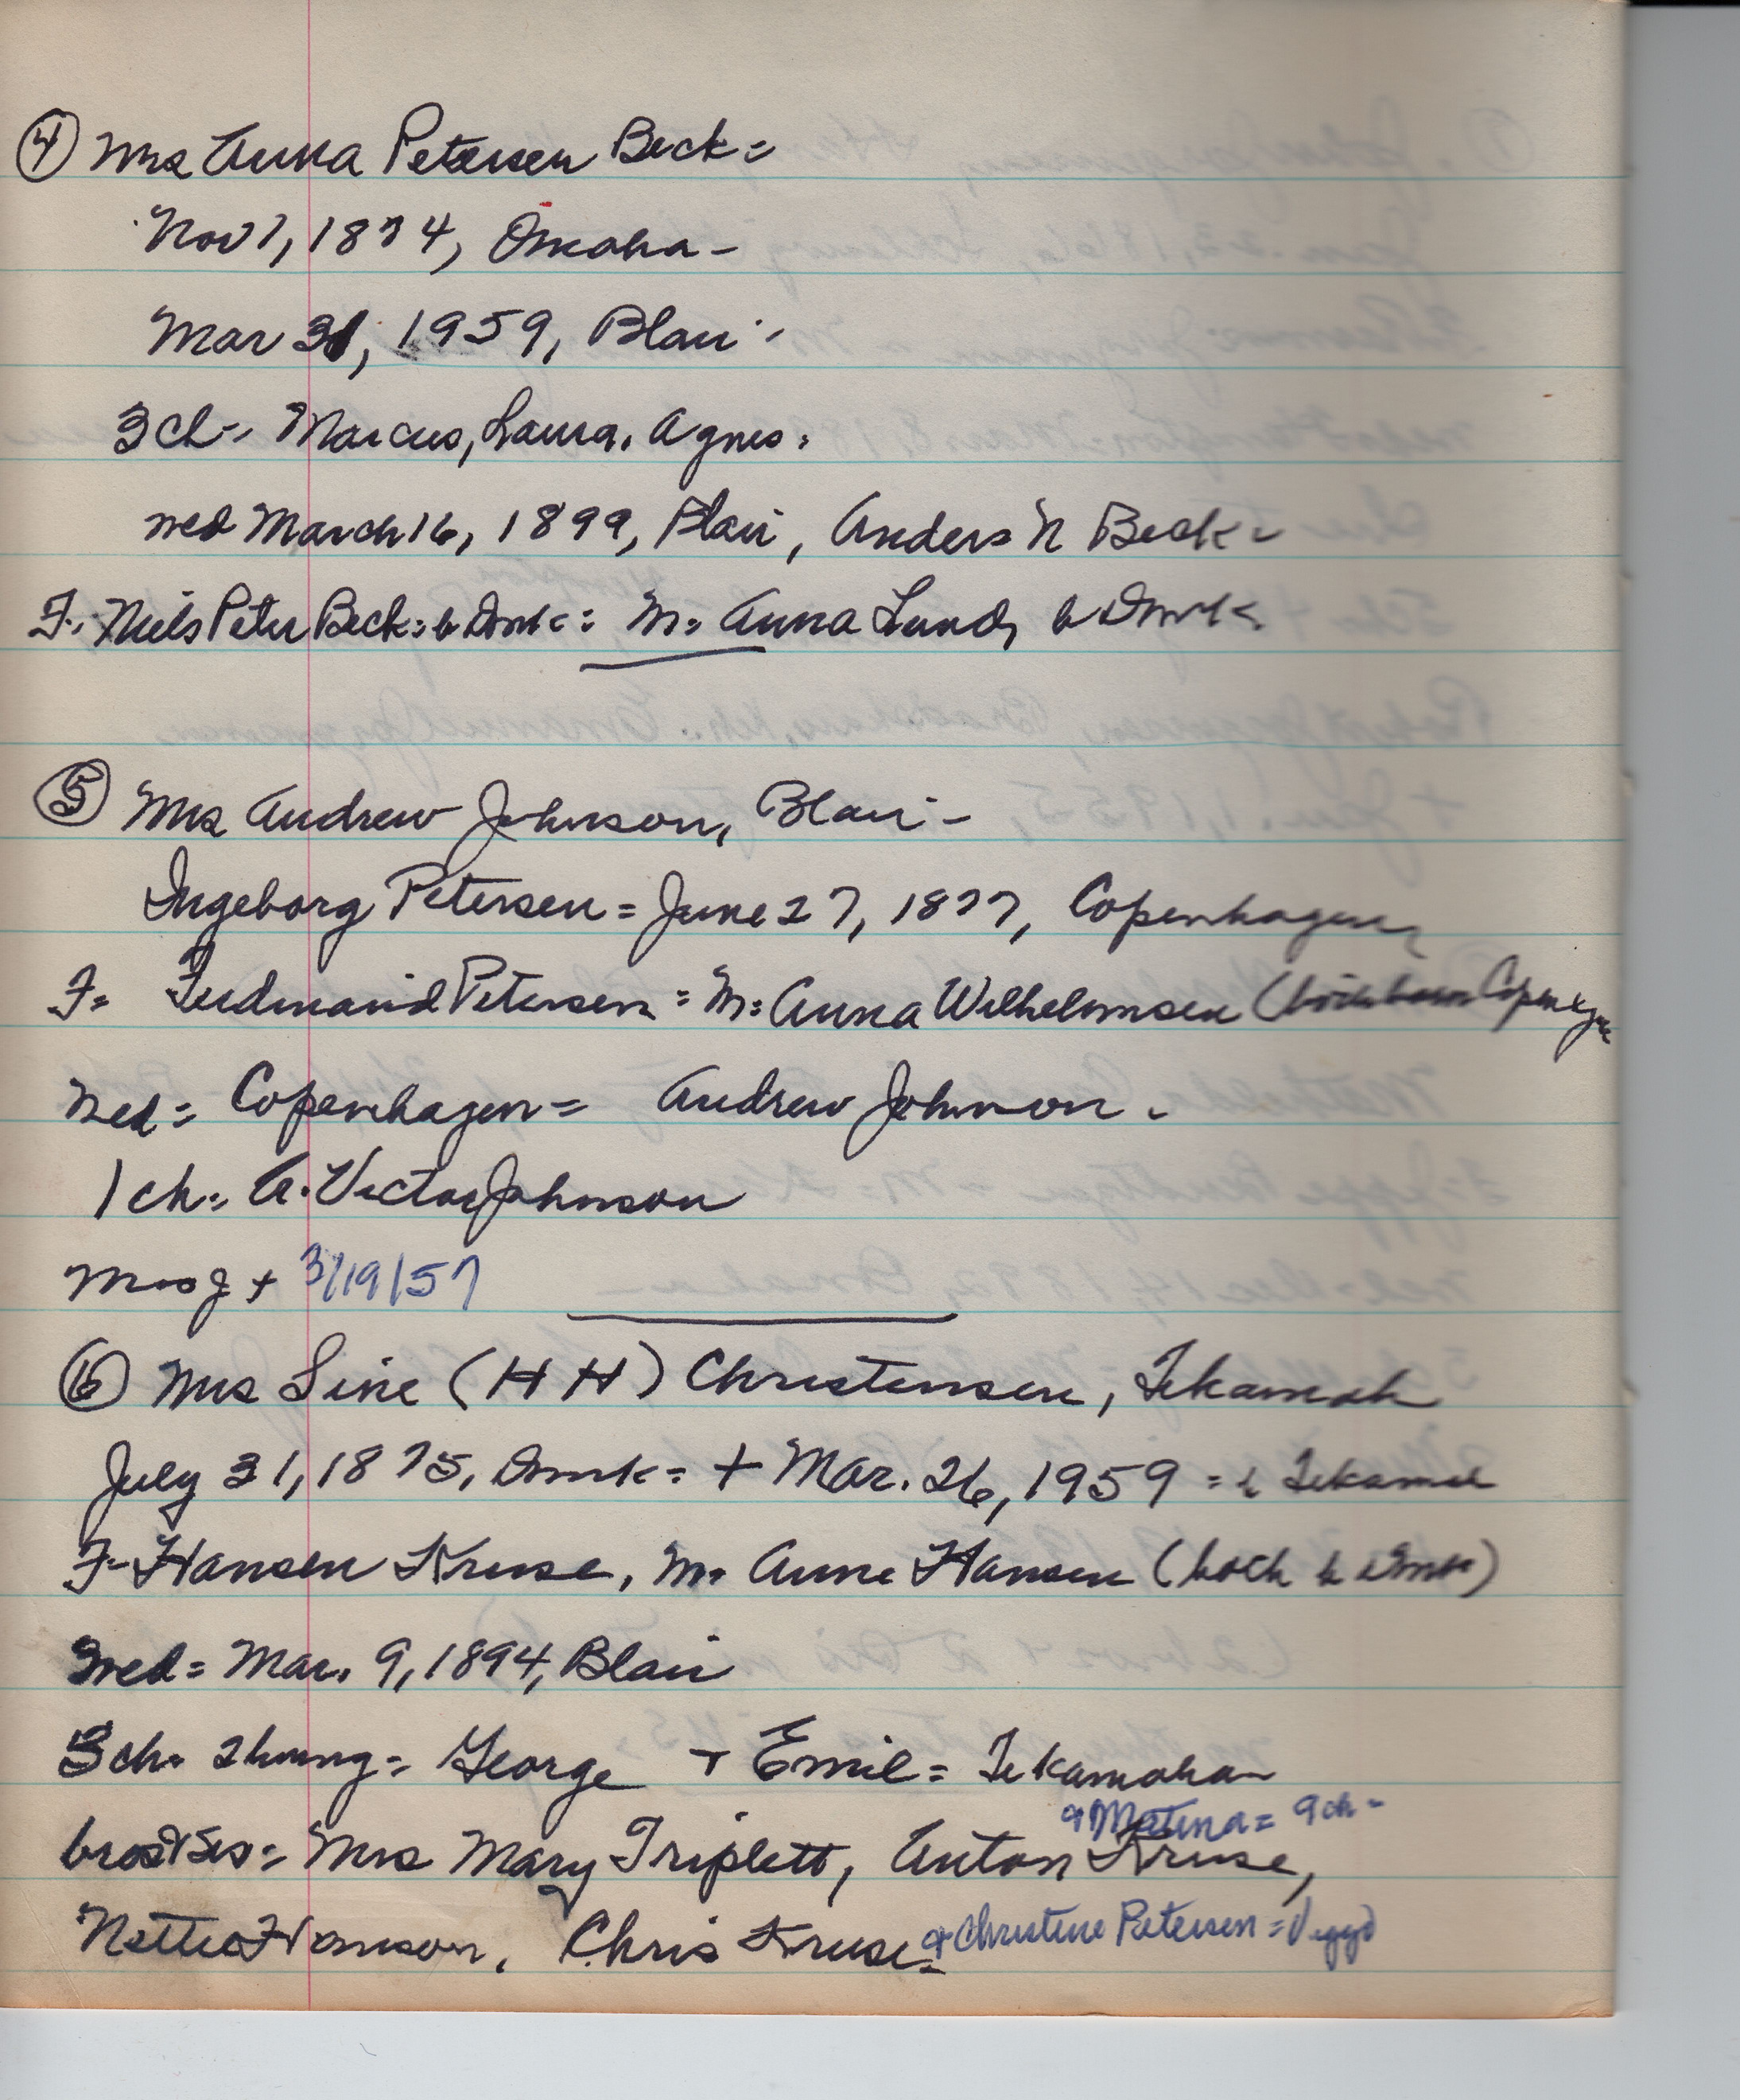 ④ Mrs Anna Petersen Beck =
Nov 7, 1874, Omaha -
Mar 31, 1959, Blair -
3 ch - Marcus, Laura, Agnes.
med March 16, 1899, Blair, Anders N Beck =
F. Niels Peter Beck = b Dmk = M = Anna Lund, b Dmk
⑤ Mrs Andrew Johnson, Blair -
Ingeborg Petersen = June 27, 1877, Copenhagen
F = Ferdinand Petersen = M = Anna Wilhelmsen (both born Copenhgn
Med = Copenhagen = Andrew Johnson.
1 ch = A. Victor Johnson
Mrs J + 3/19/57
⑥ Mrs Sine (H H) Christensen, Tekamah
July 31, 1875, Dmk = + Mar. 26, 1959 = Tekamah
F - Hansen Kruse, M = Anne Hansen (both b Dmk)
Med = Mar. 9, 1894, Blair
ch = 2 living = George + Emil = Tekamah
& Matina = 9 ch -
bros & sis = Mrs Mary Triplett, Anton Kruse,
Nettie Hanson, Chris Kruse = & Christine Petersen =